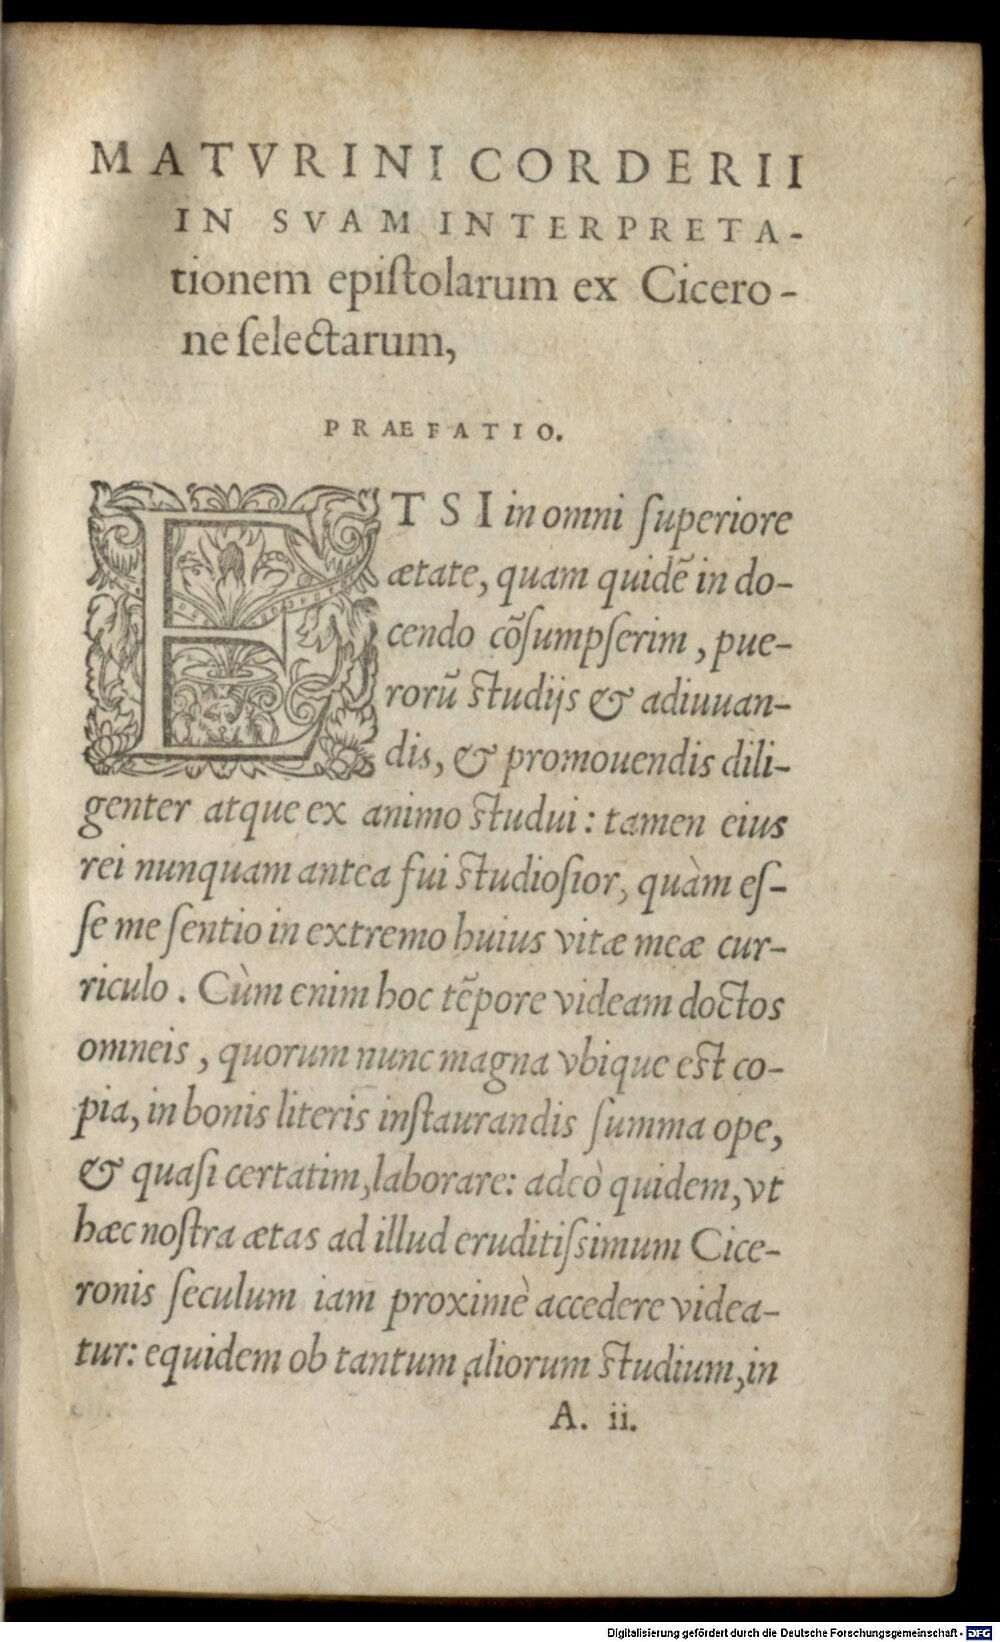 MATVRINI CORDERII
IN SVAM INTERPRETA-
tionem epiſtolarum ex Cicero-
ne ſelectarum,
PRAEFATIO.
ETSI in omni ſuperiore
ætate, quam quidē in do-
cendo cōſumpſerim, pue-
rorū ſtudijs & adiuuan-
dis, & promouendis dili-
genter atque ex animo ſtudui: tamen eius
rei nunquam antea fui ſtudioſior, quàm eſ-
ſe me ſentio in extremo huius vitæ meæ cur-
riculo. Cùm enim hoc tēpore videam doctos
omneis, quorum nunc magna vbique eſt co-
pia, in bonis literis inſtaurandis ſumma ope,
& quaſi certatim, laborare: adeò quidem, vt
hæc noſtra ætas ad illud eruditiſsimum Cice-
ronis ſeculum iam proximè accedere videa-
tur: equidem ob tantum aliorum ſtudium, in
A. ii.
Digitalisierung gefördert durch die Deutsche Forschungsgemeinschaft - DFG